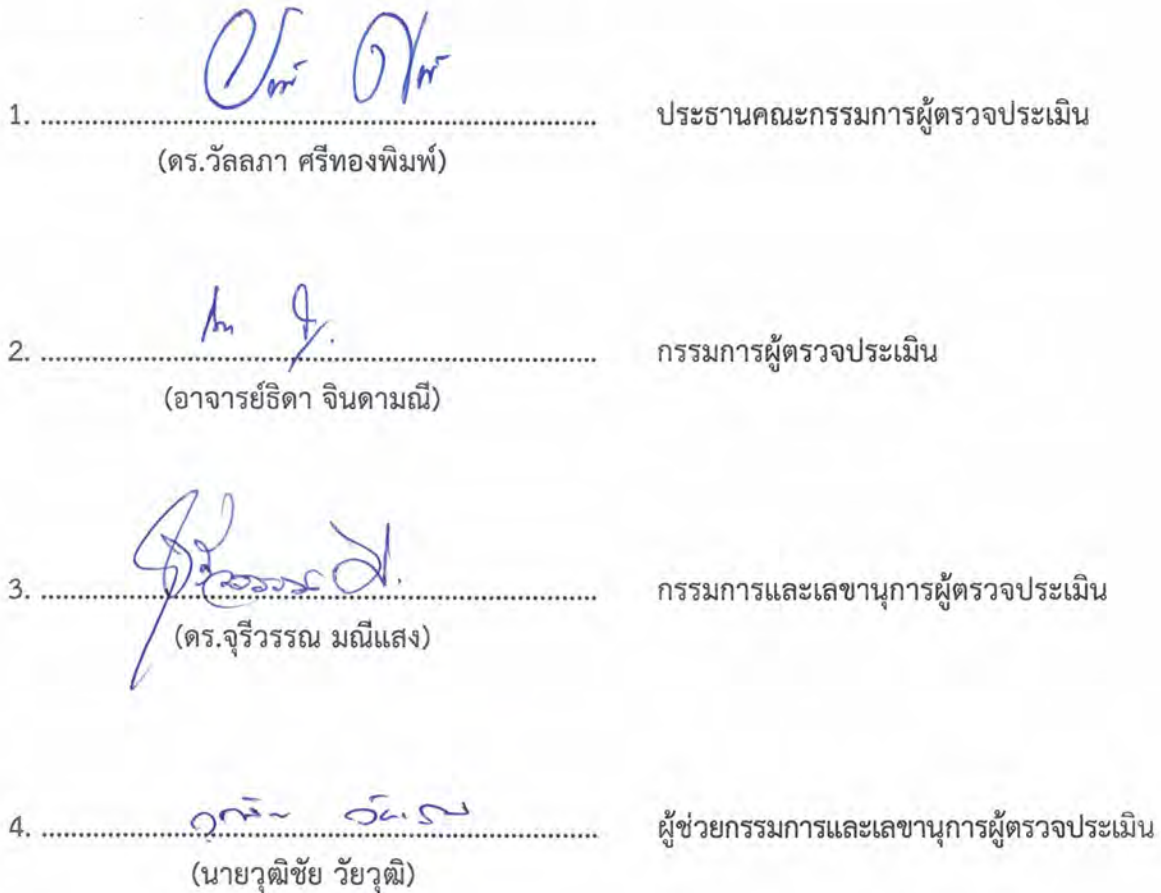 1. .......... ประธานคณะกรรมการผู้ตรวจประเมิน
(ดร.วัลลภา ศรีทองพิมพ์)
2. .......... กรรมการผู้ตรวจประเมิน
(อาจารย์ธิดา จินดามณี)
3. .......... กรรมการและเลขานุการผู้ตรวจประเมิน
(ดร.จุรีวรรณ มณีแสง)
4. .......... ผู้ช่วยกรรมการและเลขานุการผู้ตรวจประเมิน
(นายวุฒิชัย วัยวุฒิ)